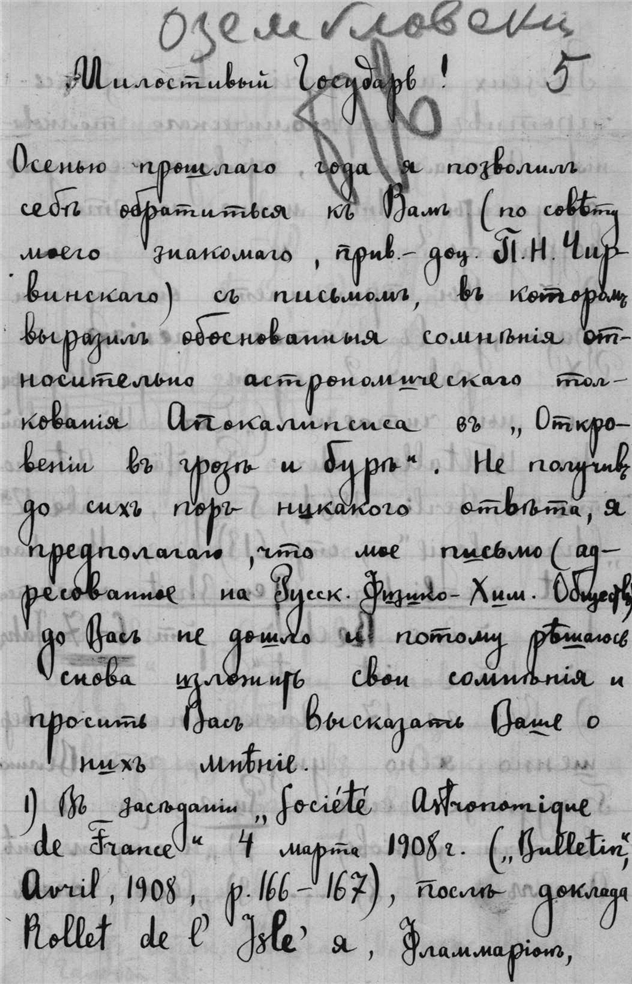 Озембловский
Милостивый Государь! 5
Осенью прошлаго года я позволилъ
себѣ обратиться къ Вамъ (по совѣту
моего знакомаго, прив.-доц. П.Н. Чир-
винскаго) съ письмомъ, въ которомъ
выразилъ обоснованныя сомнѣнія от-
носительно астрономическаго тол-
кованія Апокалипсиса въ „Откро-
веніи въ грозѣ и бурѣ“. Не получивъ
до сихъ поръ никакого отвѣта, я
предполагаю, что мое письмо (ад-
ресованное на Русск. Физико-Хим. Общество)
до Васъ не дошло и потому рѣшаюсь
снова изложить свои сомнѣнія и
просить Васъ высказать Ваше о
нихъ мнѣніе.
1) Въ засѣданіи „Société Astronomique
de France“ 4 марта 1908 г. („Bulletin“,
Avril, 1908, p. 166–167), послѣ доклада
Rollet de l'Isle'я, Фламмаріонъ,